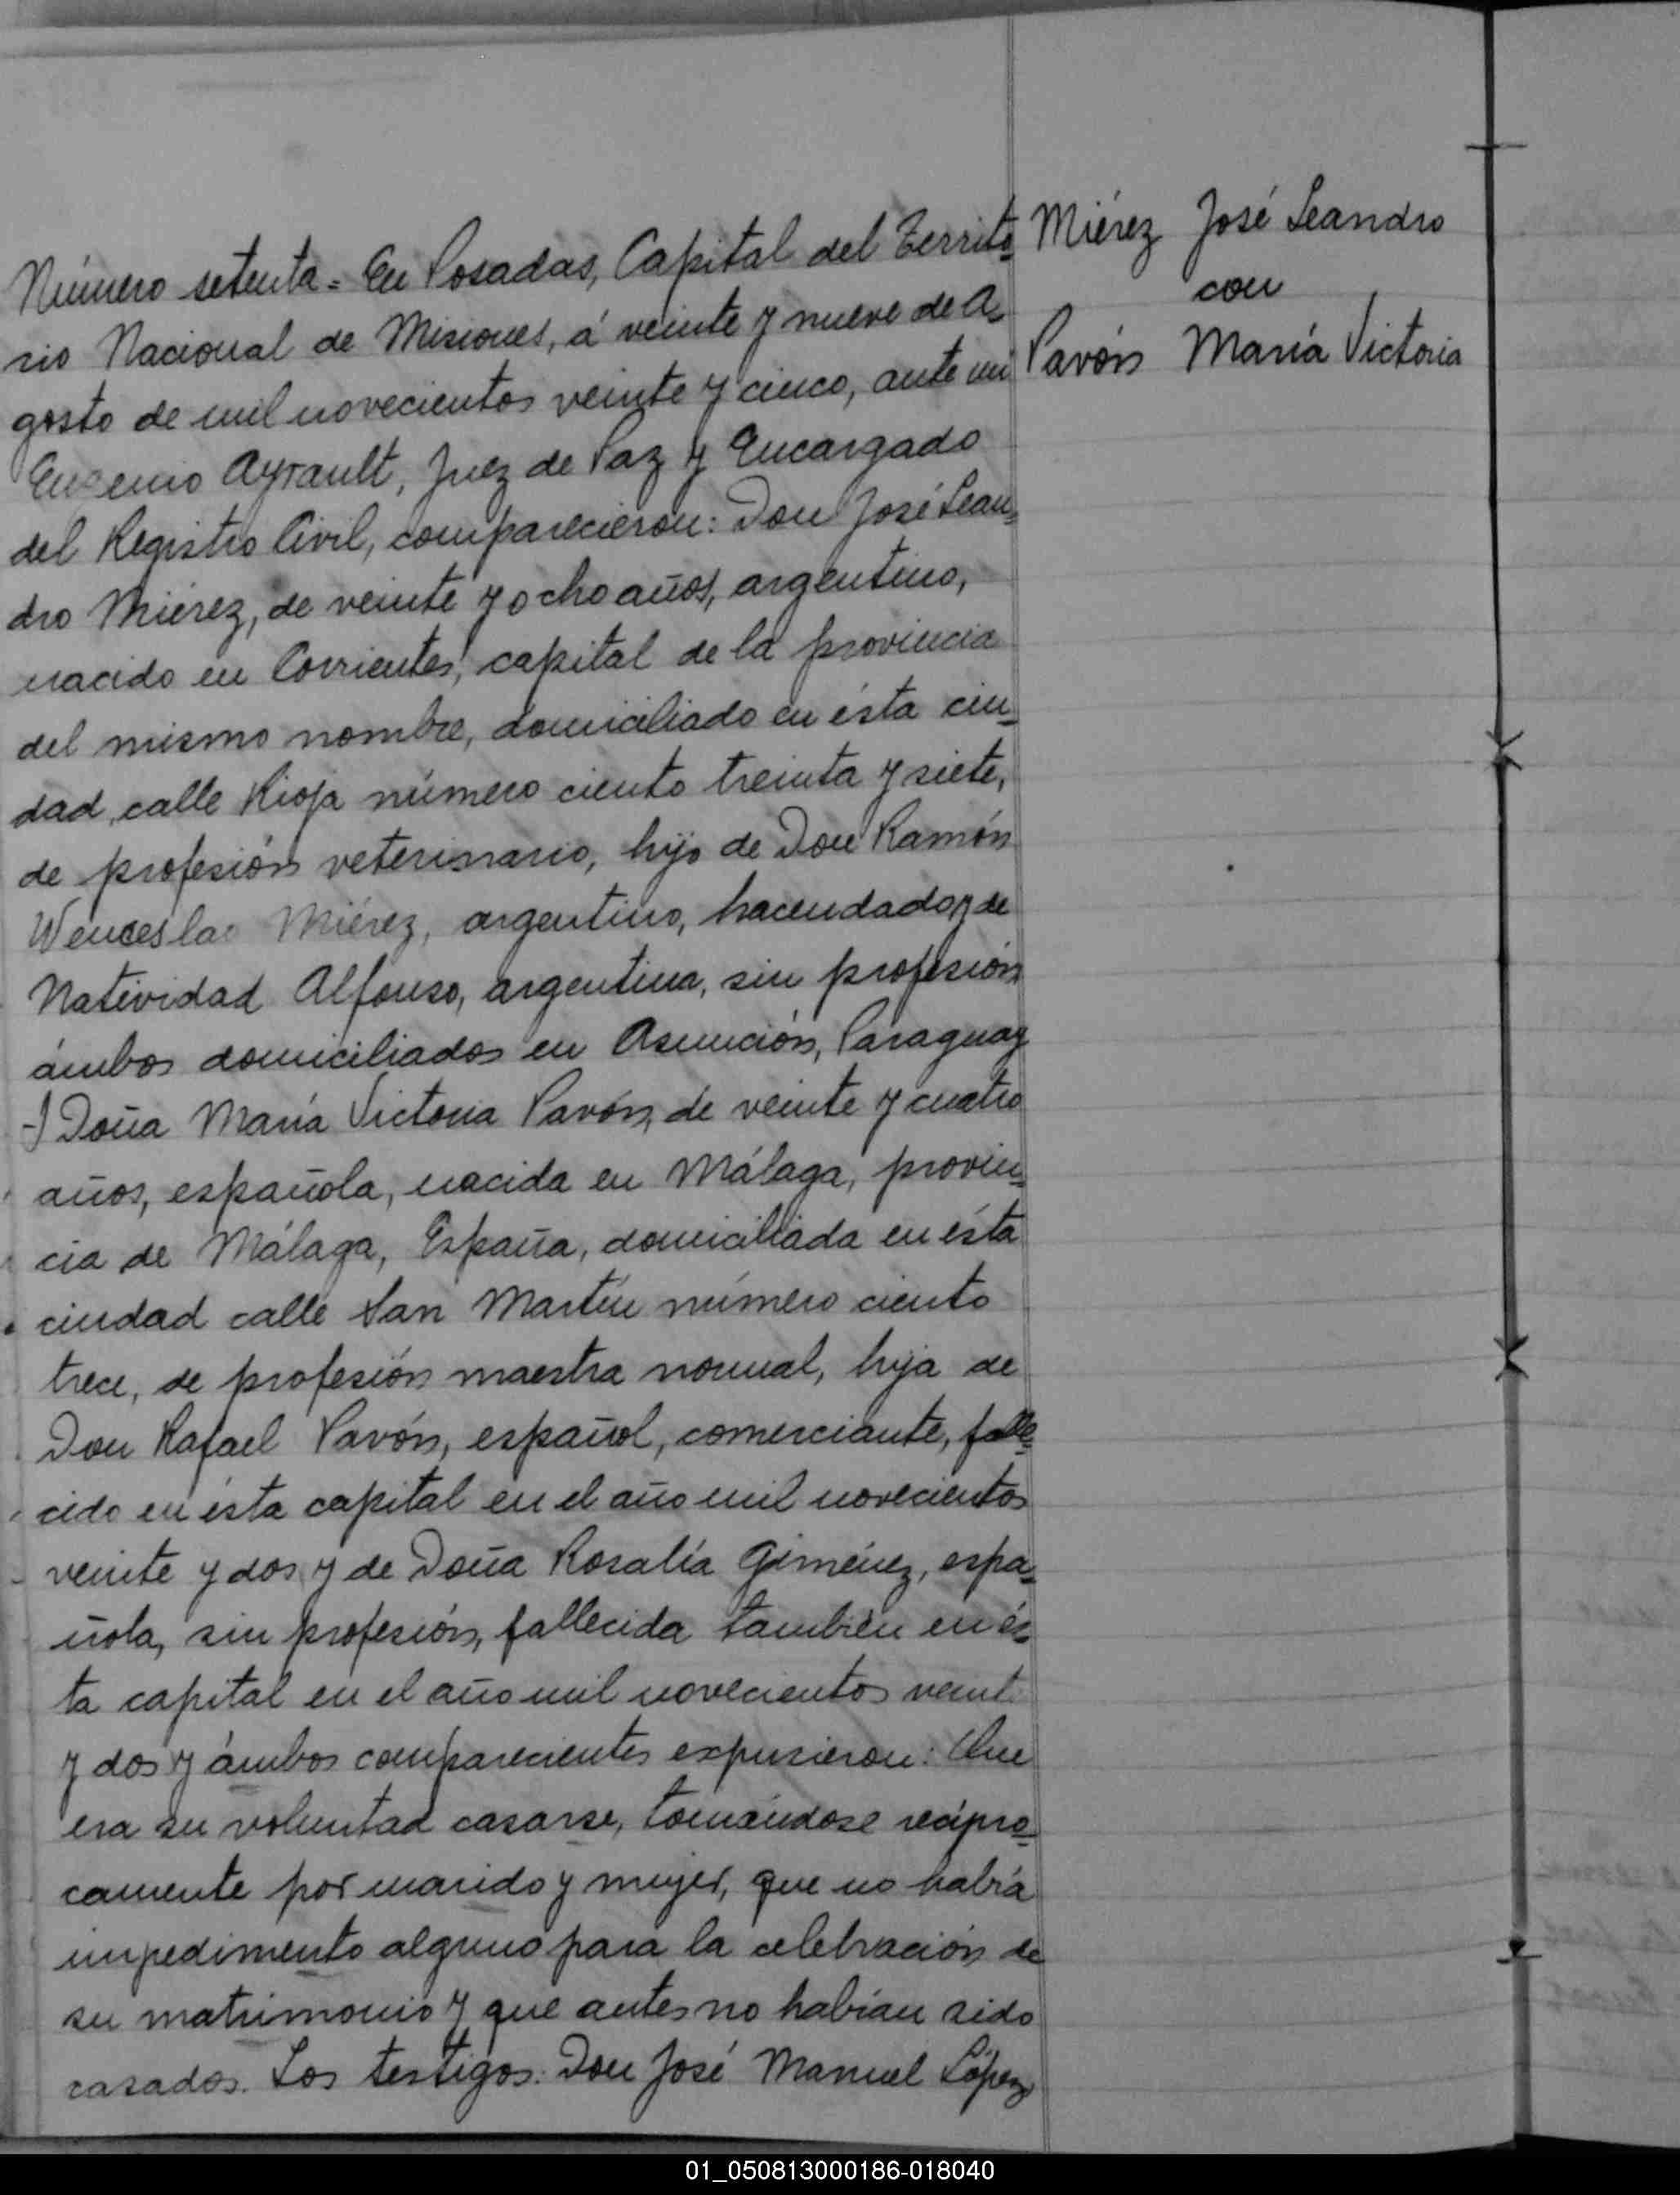 Miérez José Leandro
con
Pavón María Victoria
Número setenta = En Posadas, Capital del Territo-
rio Nacional de Misiones, á veinte y nueve de A-
gosto de mil novecientos veinte y cinco, ante mi
Eugenio Ayrault, Juez de Paz y Encargado
del Registro Civil, comparecieron: Don José Lean-
dro Miérez, de veinte y ocho años, argentino,
nacido en Corrientes, capital de la provincia
del mismo nombre, domiciliado en ésta ciu-
dad, calle Rioja número ciento treinta y siete,
de profesión veterinario, hijo de Don Ramón
Wenceslao Miérez, argentino, hacendado y de
Natividad Alfonso, argentina, sin profesión
ámbos domiciliados en Asunción, Paraguay
-y Doña María Victoria Pavón, de veinte y cuatro
años, española, nacida en Málaga, provin-
cia de Málaga, España, domiciliada en ésta
ciudad calle San Martín número ciento
trece, de profesión maestra normal, hija de
Don Rafael Pavón, español, comerciante, falle-
cido en ésta capital en el año mil novecientos
veinte y dos y de Doña Rosalía Giménez, espa-
ñola, sin profesión, fallecida también en és-
ta capital en el año mil novecientos veinte
y dos y ámbos comparecientes expusieron: Que
era su voluntad casarse, tomándose recipro-
camente por marido y mujer, que no había
impedimento alguno para la celebración de
su matrimonio y que antes no habían sido
casados. Los testigos: Don José Manuel López
01_050813000186-018040